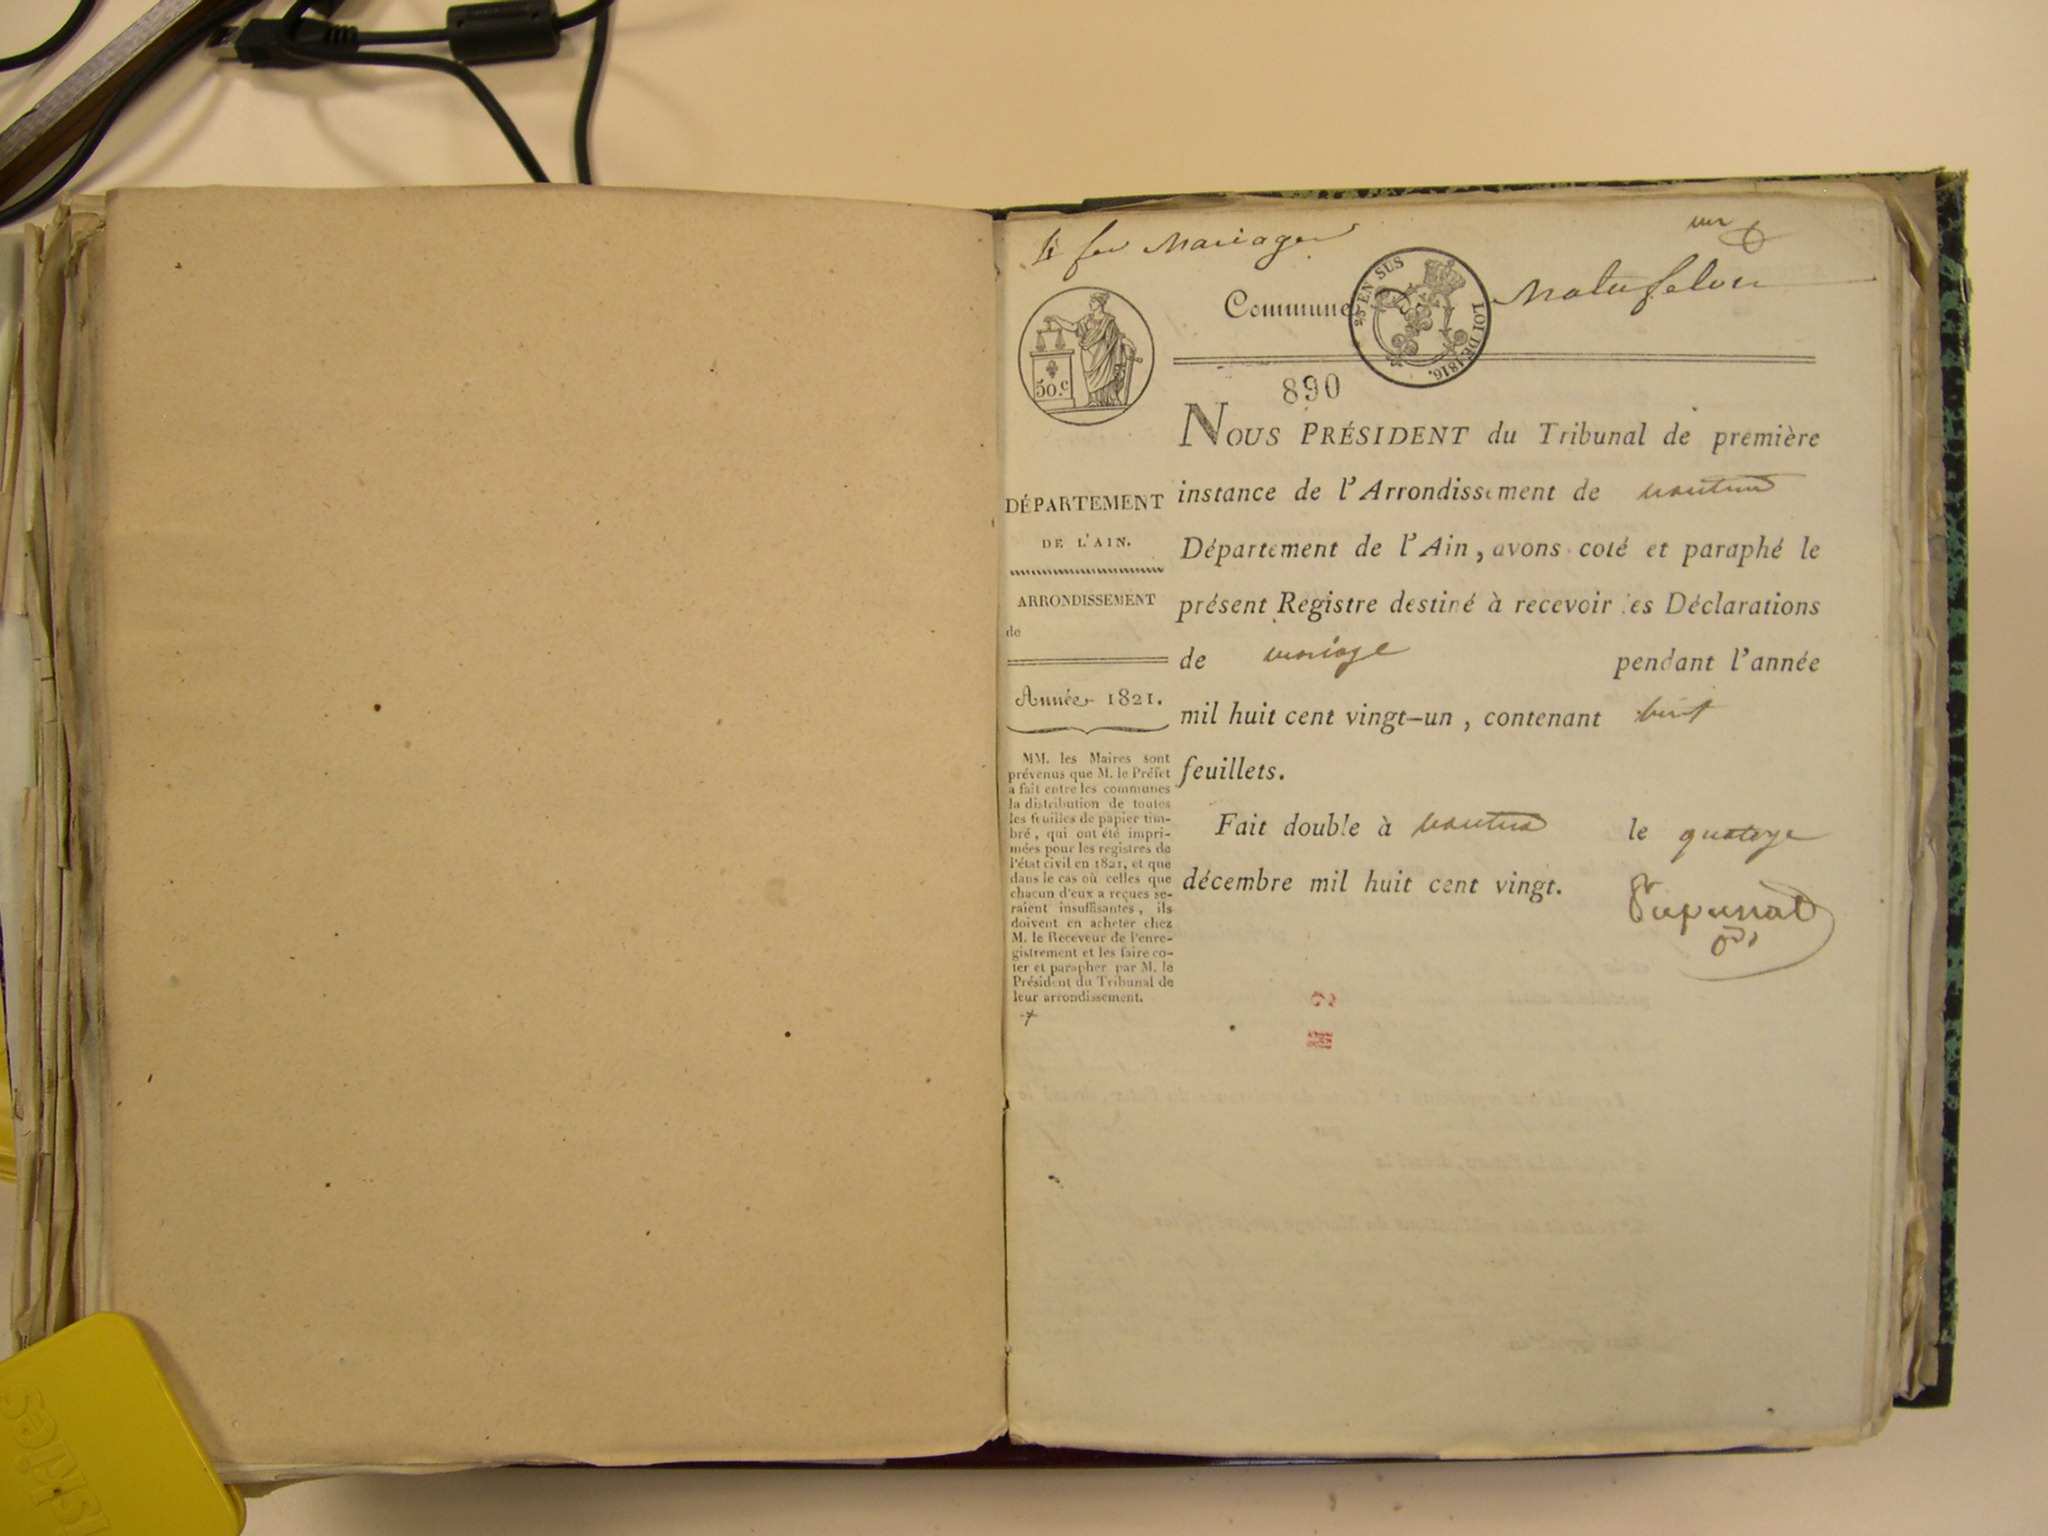 Mariages
un
Commune Matafelon
25 C EN SUS
LOI DE 1816.
50.c
890
NOUS PRÉSIDENT du Tribunal de première
instance de l'Arrondissement de nantua
Département de l'Ain, avons coté et paraphé le
présent Registre destiné à recevoir les Déclarations
de mariage pendant l'année
mil huit cent vingt-un, contenant huit
feuillets.
Fait double à nantua le quatorze
décembre mil huit cent vingt.
DÉPARTEMENT
DE L'AIN.
ARRONDISSEMENT
de
Année 1821.
MM. les Maires sont
prévenus que M. le Préfet
a fait entre les communes
la distribution de toutes
les feuilles de papier tim-
bré, qui ont été impri-
mées pour les registres de
l'état civil en 1821, et que
dans le cas où celles que
chacun d'eux a reçues se-
raient insuffisantes, ils
doivent en acheter chez
M. le Receveur de l'enre-
gistrement et les faire co-
ter et parapher par M. le
Président du Tribunal de
leur arrondissement.